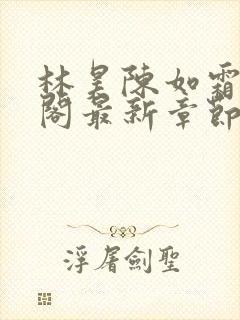 林昊陳如霜
閣最新章節
浮屠劍聖